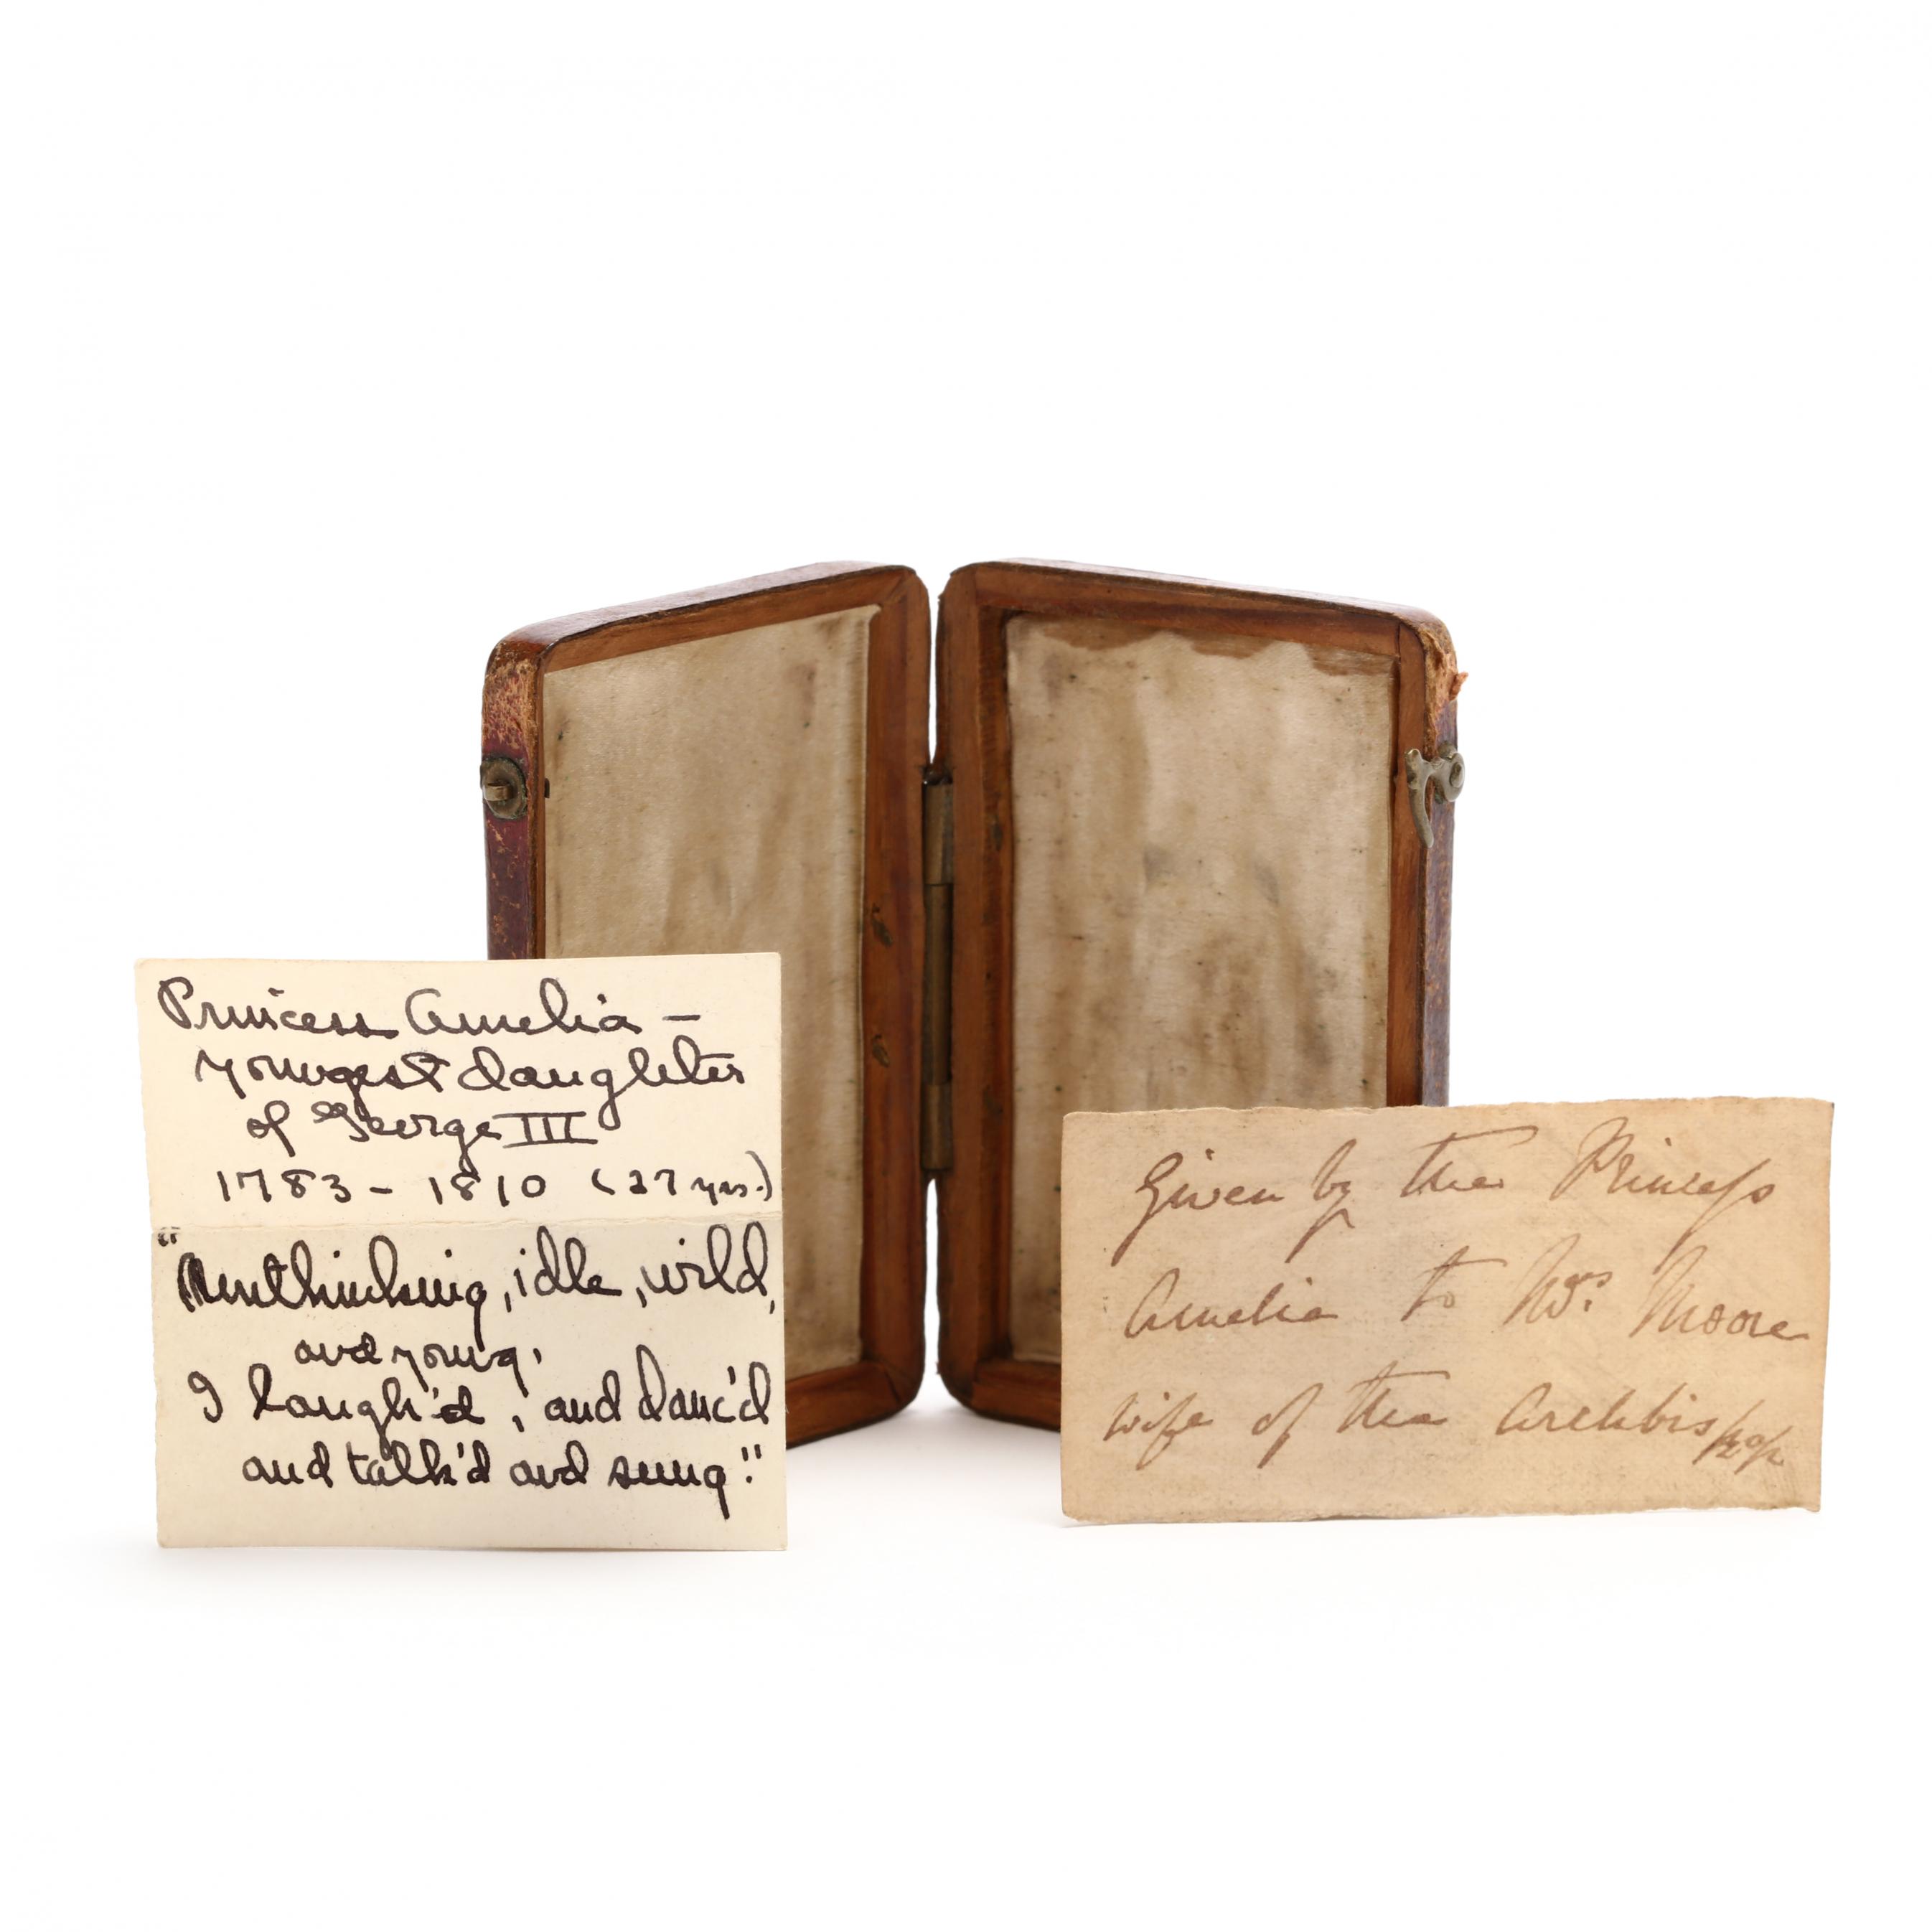 Princess Amelia –
youngest daughter
of George III
1783 – 1810 (27 yrs.)
"Unthinking, idle, wild,
and young,
I laugh'd, and danc'd
and talk'd and sung."
Given by the Princess
Amelia to Mrs. Moore
wife of the Archbishop